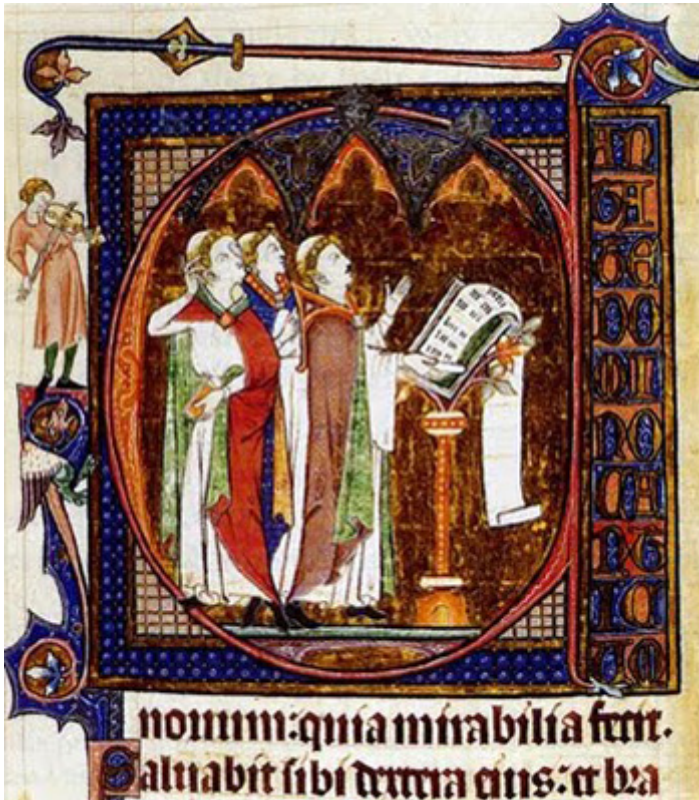 CAN
TA
TE
DO
MI
NO
CA
NT
IC
UM
nouum: quia mirabilia fecit.
Saluabit sibi dextera eius: et bra